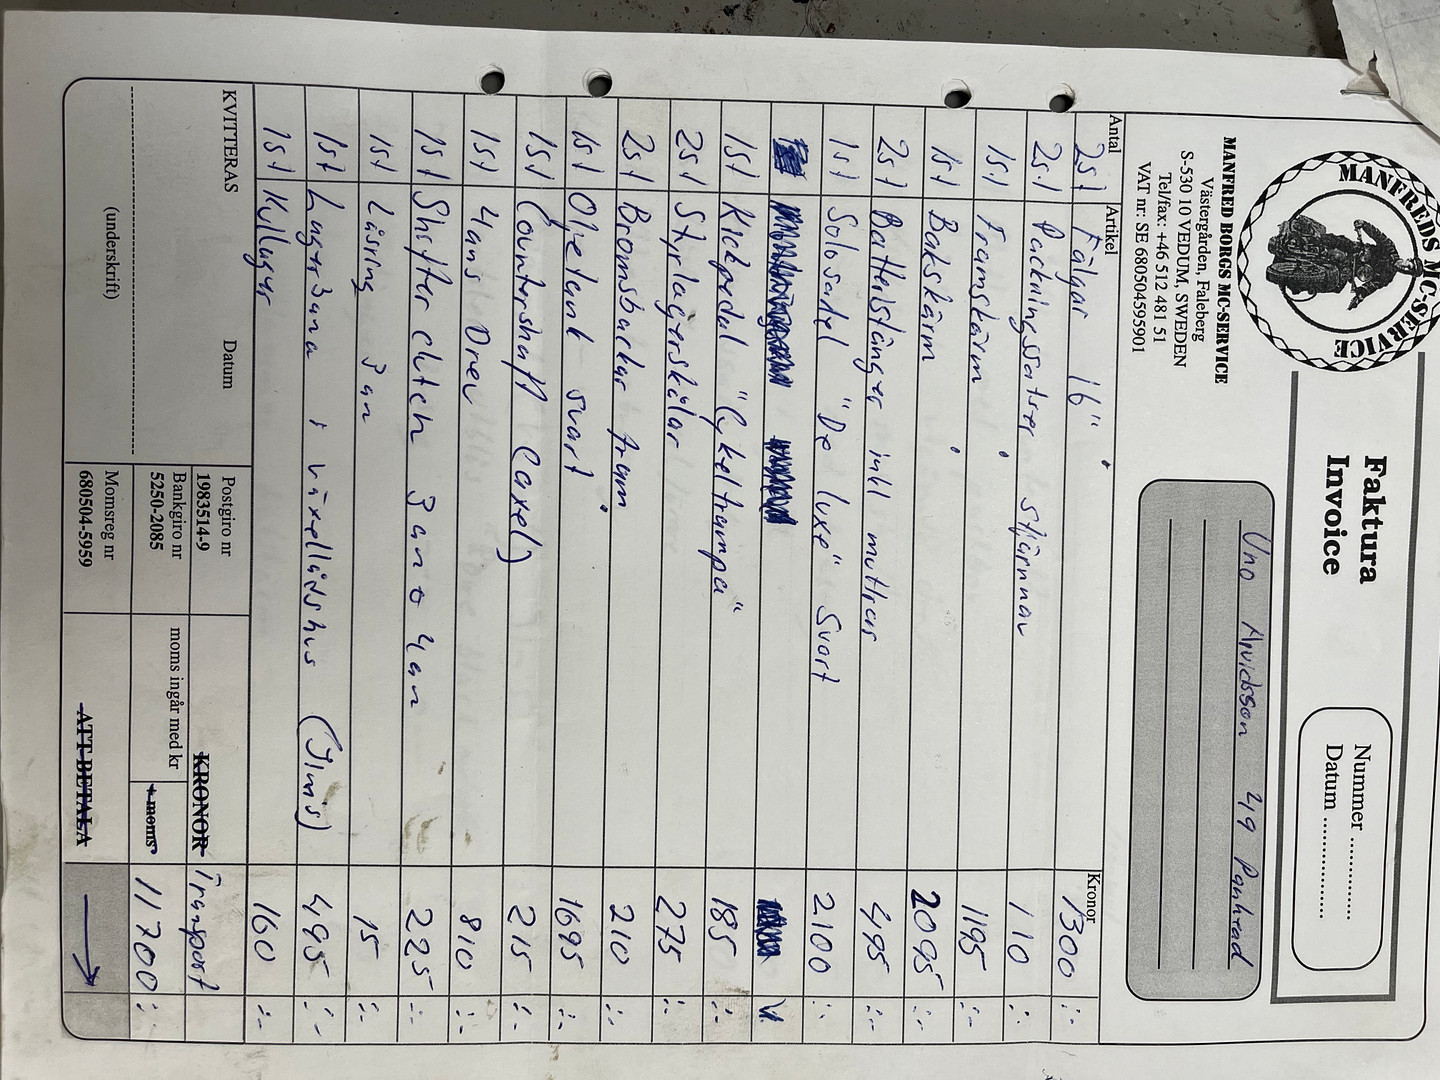 MANFREDS MC-SERVICE
MANFRED BORGS MC-SERVICE
Västergården, Faleberg
S-530 10 VEDUM, SWEDEN
Tel/fax: +46 512 481 51
VAT nr: SE 680504595901
Faktura
Invoice
Nummer ................
Datum ................
Uno Arvidsson 49 Panhead
Antal Artikel Kronor
2st Fälgar 16" 1300 :-
2st Packningssatser stjärnnav 110 :-
1st Framskärm 1195 :-
1st Bakskärm 2095 :-
2st Batteristänger inkl muttrar 495 :-
1st Solosadel "De luxe" Svart 2100 :-
1st Kickpedal "Cykeltrampa" 185 :-
2st Styrlagerskålar 275 :-
2st Bromsbackar fram 210 :-
1st Oljetank svart 1695 :-
1st Countershaft (axel) 215 :-
1st 4ans Drev 810 :-
1st Shifter clutch 3an o 4an 225 :-
1st Låsring 3an 15 :-
1st Lagerbana i växellådshus (Jims) 495 :-
1st Kullager 160 :-
KVITTERAS Datum
(underskrift)
Postgiro nr
1983514-9
Bankgiro nr
5250-2085
Momsreg nr
680504-5959
KRONOR Transport
moms ingår med kr + moms 11700:-
ATT BETALA